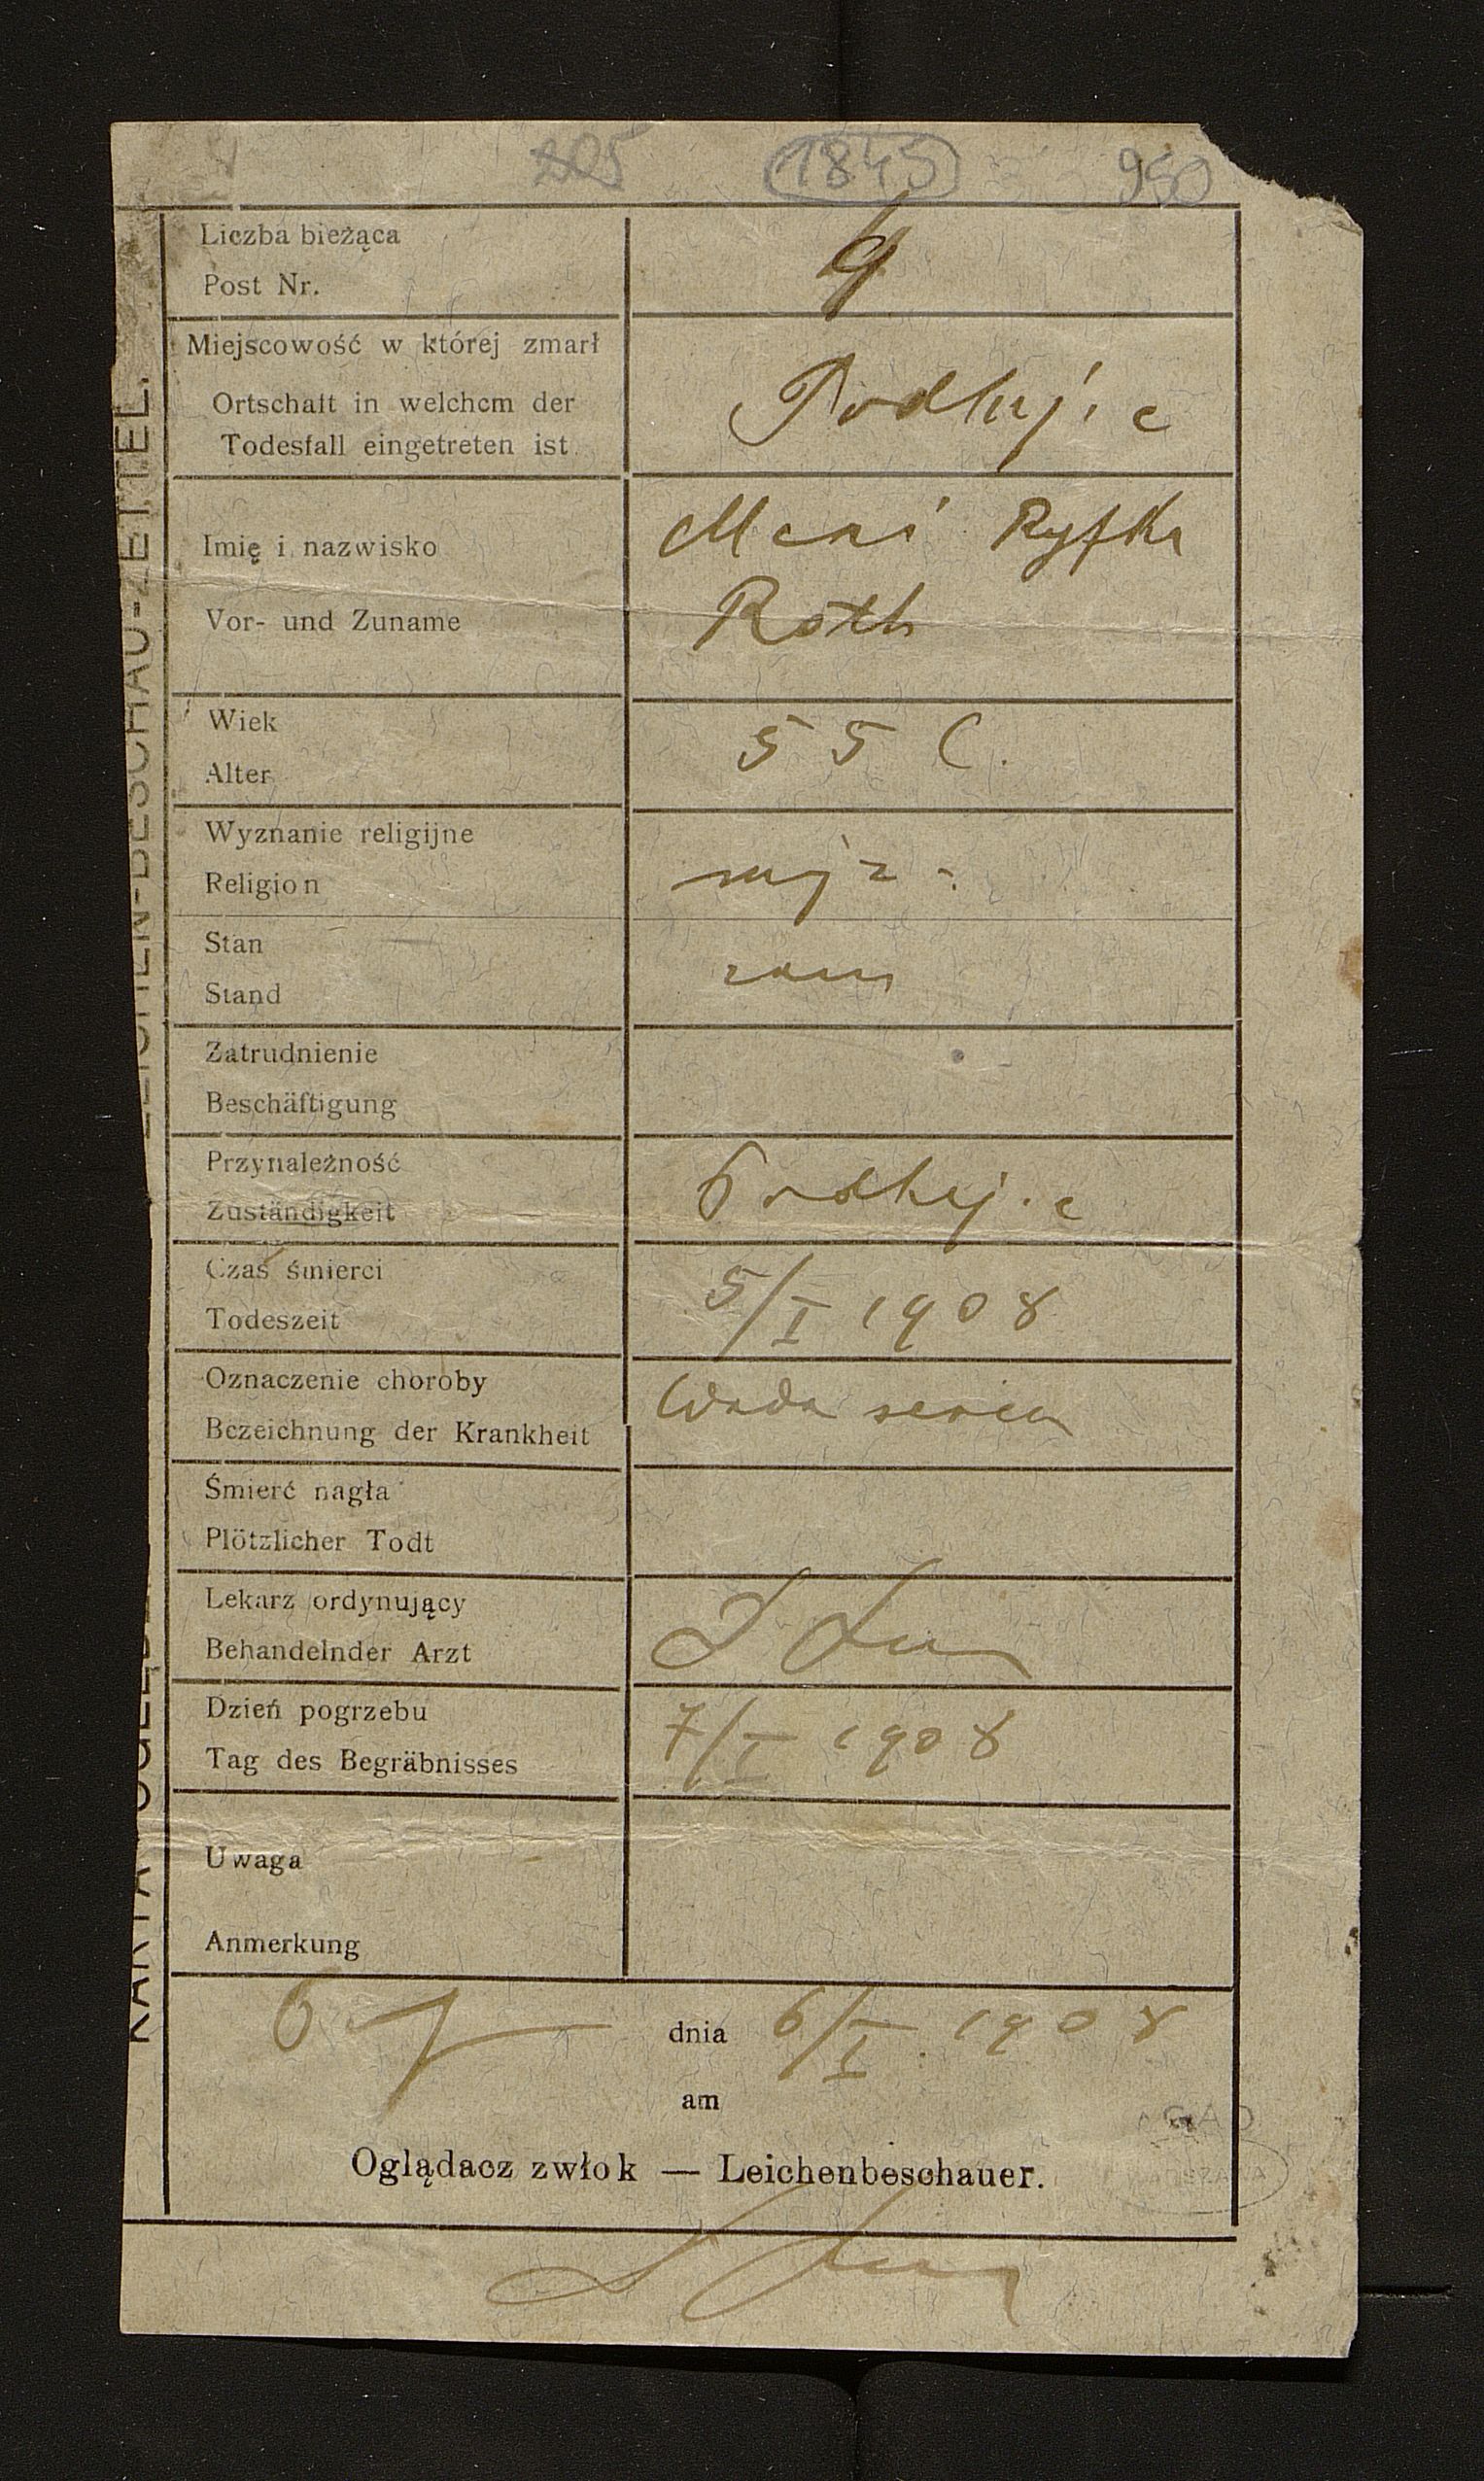 205 1845 950
Liczba bieżąca
Post Nr.
9
Miejscowość w której zmarł
Ortschaft in welchem der
Todesfall eingetreten ist
Podhajce
Imię i nazwisko
Vor- und Zuname
Ryfka
Roth
Wiek
Alter
55 l.
Wyznanie religijne
Religion
mojż.
Stan
Stand
zam
Zatrudnienie
Beschäftigung
Przynależność
Zuständigkeit
Podhajce
Czas śmierci
Todeszeit
5/I 1908
Oznaczenie choroby
Bezeichnung der Krankheit
Wada serca
Śmierć nagła
Plötzlicher Todt
Lekarz ordynujący
Behandelnder Arzt
Dzień pogrzebu
Tag des Begräbnisses
7/I 1908
Uwaga
Anmerkung
dnia 6/I 1908
am
Oglądacz zwłok — Leichenbeschauer.
LEICHEN-BESCHAU-ZETTEL.
AGAD